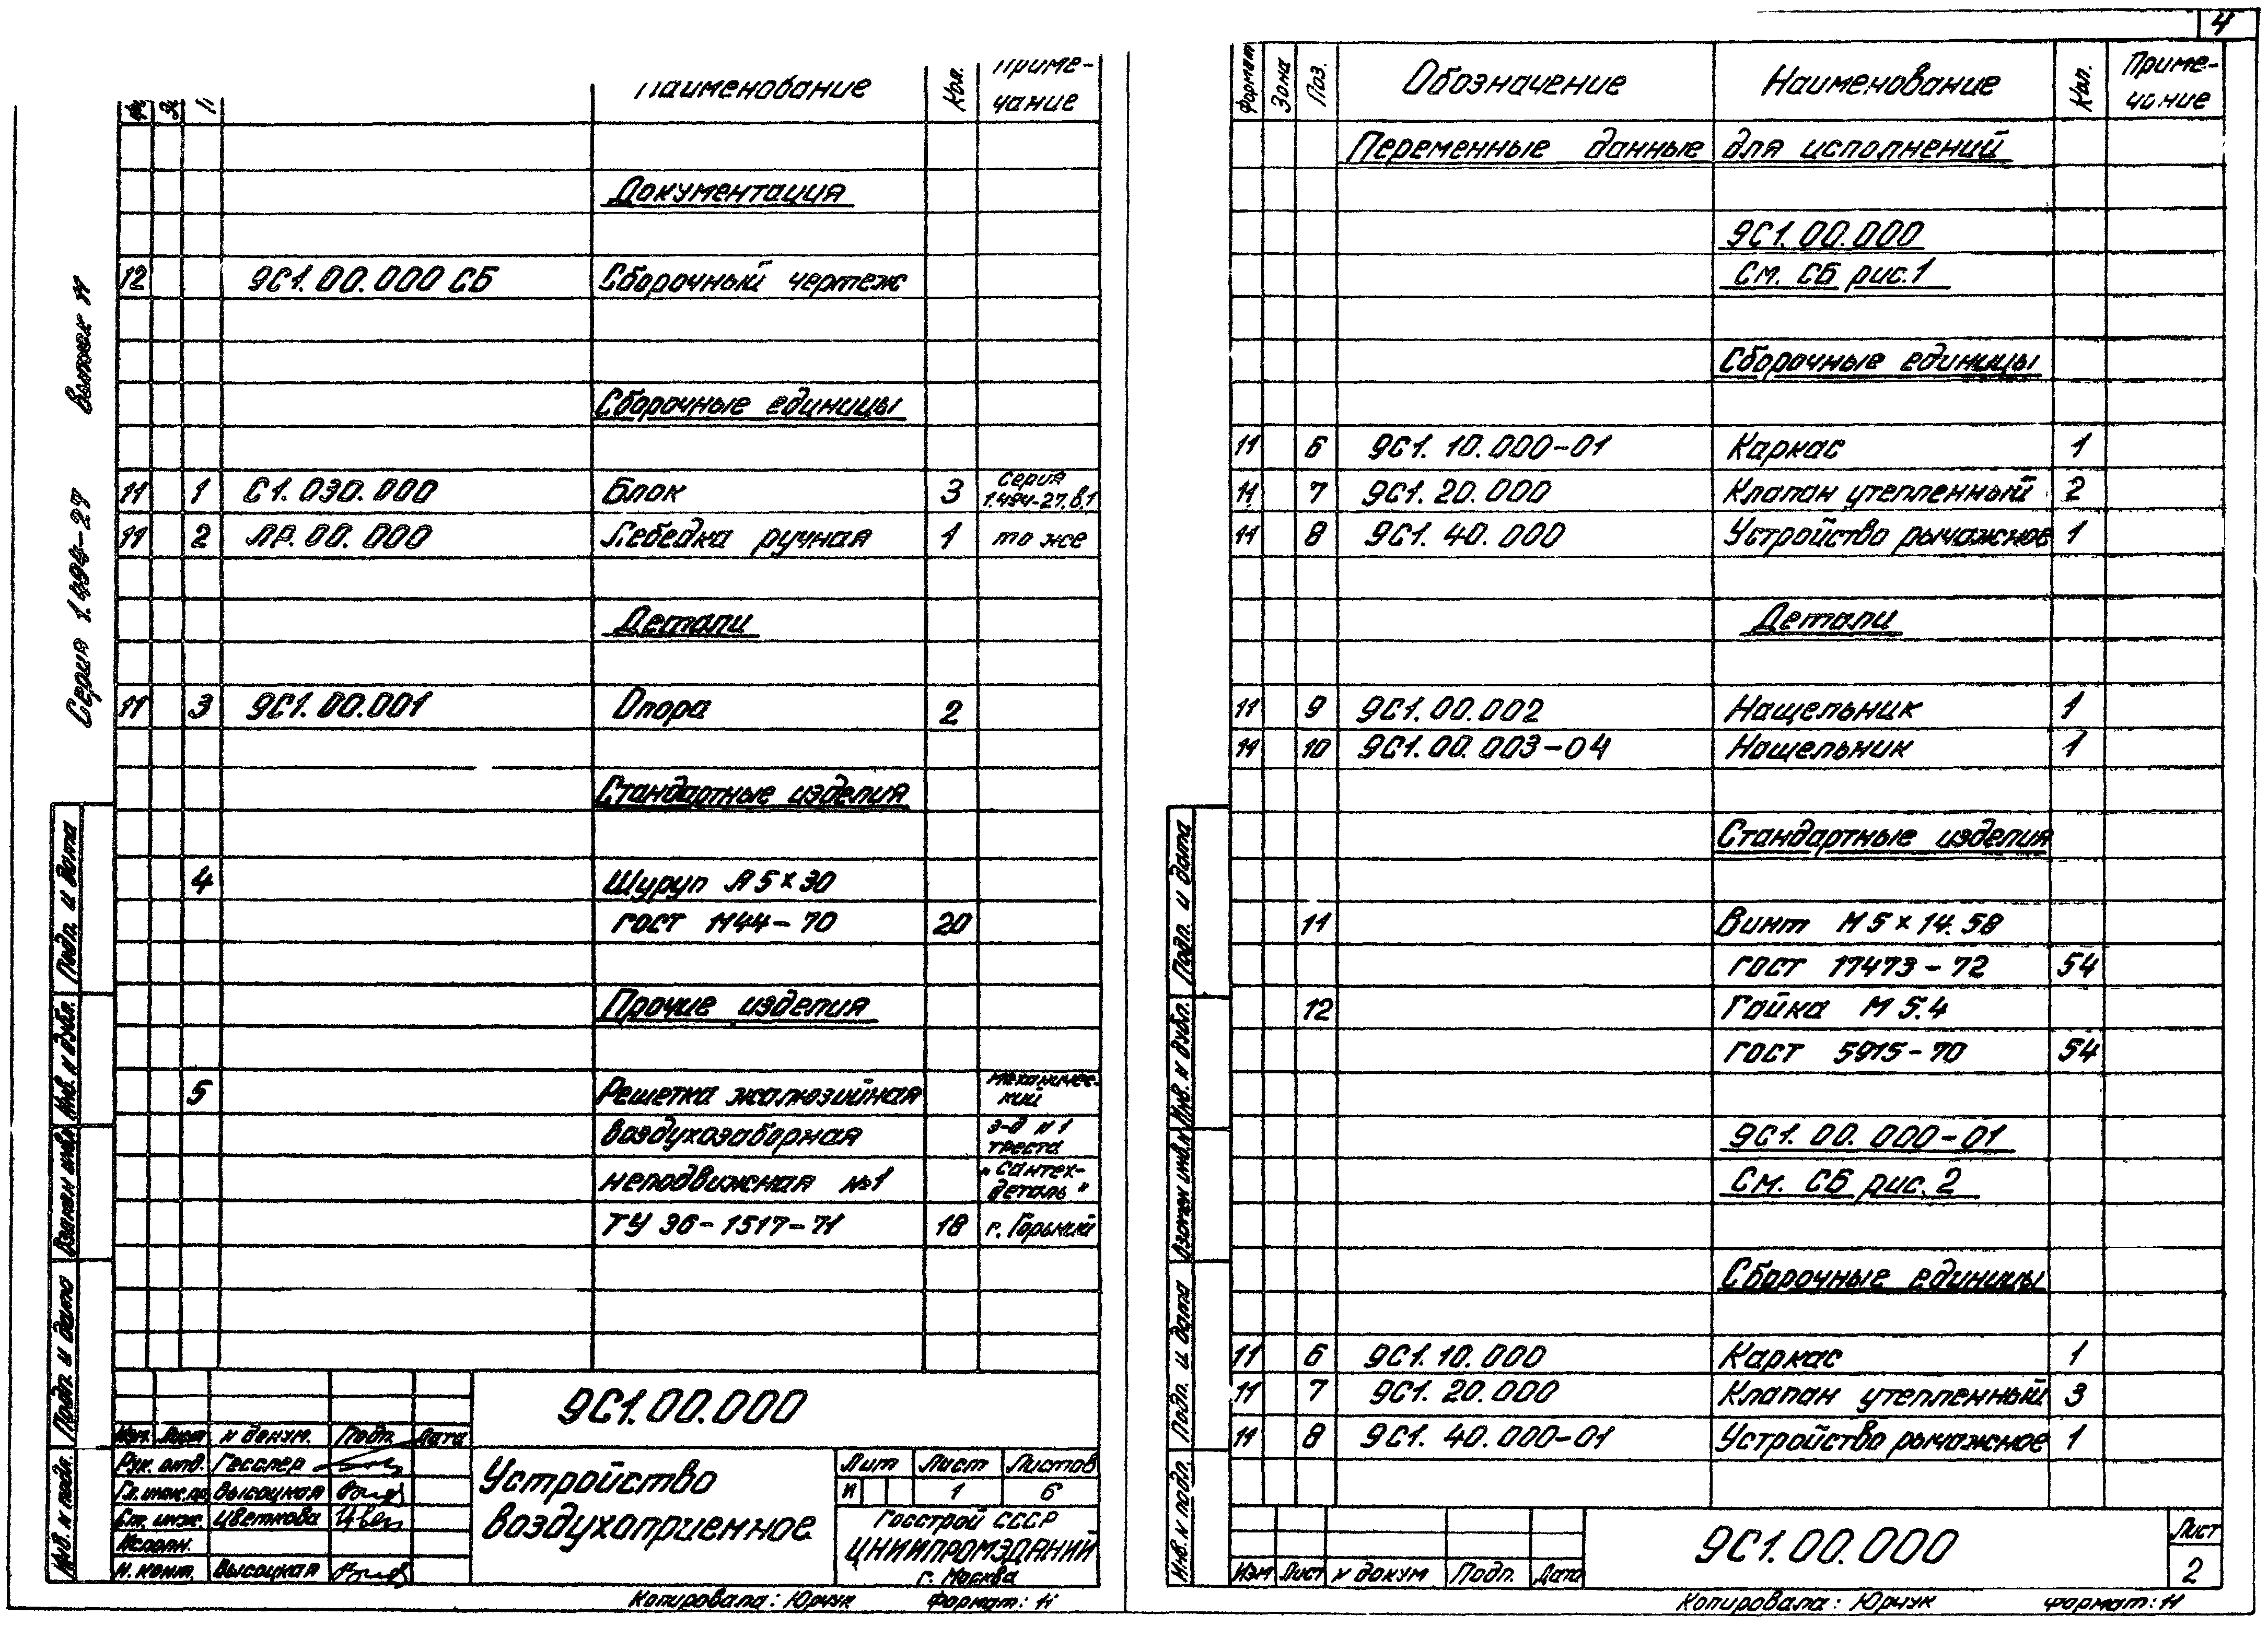 4
Наименование Кол. Приме-
чание
Документация
12 9С1.00.000 СБ Сборочный чертеж
Сборочные единицы
11 1 С1.030.000 Блок 3 Серия 1.494-27, в.1
11 2 ЛР.00.000 Лебедка ручная 1 то же
Детали
11 3 9С1.00.001 Опора 2
Стандартные изделия
4 Шуруп А 5×30
ГОСТ 1144-70 20
Прочие изделия
5 Решетка жалюзийная механичес-кий
воздухозаборная з-д N 1 треста
неподвижная №1 "Сантех-деталь"
ТУ 36-1517-71 18 г. Горький
Серия 1.494-27 Выпуск 11
Подп. и дата
Инв. N дубл.
Взамен инв. N
Подп. и дата
Инв. N подл.
9С1.00.000
Изм. Лист N докум. Подп. Дата
Рук. отд. Гесслер
Гл. инж. пр. Высоцкая
Ст. инж. Цветкова
Исполн.
Н. конт. Высоцкая
Устройство
воздухоприемное
Лит Лист Листов
И 1 6
Госстрой СССР
ЦНИИПРОМЗДАНИЙ
г. Москва
Копировала: Юрчук Формат: 11
Формат Зона Поз. Обозначение Наименование Кол. Приме-
чание
Переменные данные для исполнений
9С1.00.000
См. СБ рис.1
Сборочные единицы
11 6 9С1.10.000-01 Каркас 1
11 7 9С1.20.000 Клапан утепленный 2
11 8 9С1.40.000 Устройство рычажное 1
Детали
11 9 9С1.00.002 Нащельник 1
11 10 9С1.00.003-04 Нащельник 1
Стандартные изделия
11 Винт М 5×14.58
ГОСТ 17473-72 54
12 Гайка М 5.4
ГОСТ 5915-70 54
9С1.00.000-01
См. СБ рис. 2
Сборочные единицы
11 6 9С1.10.000 Каркас 1
11 7 9С1.20.000 Клапан утепленный 3
11 8 9С1.40.000-01 Устройство рычажное 1
Подп. и дата
Инв. N дубл.
Взамен инв. N
Подп. и дата
Инв. N подл.
Изм Лист N докум Подп. Дата
9С1.00.000
Лист
2
Копировала: Юрчук Формат: 11